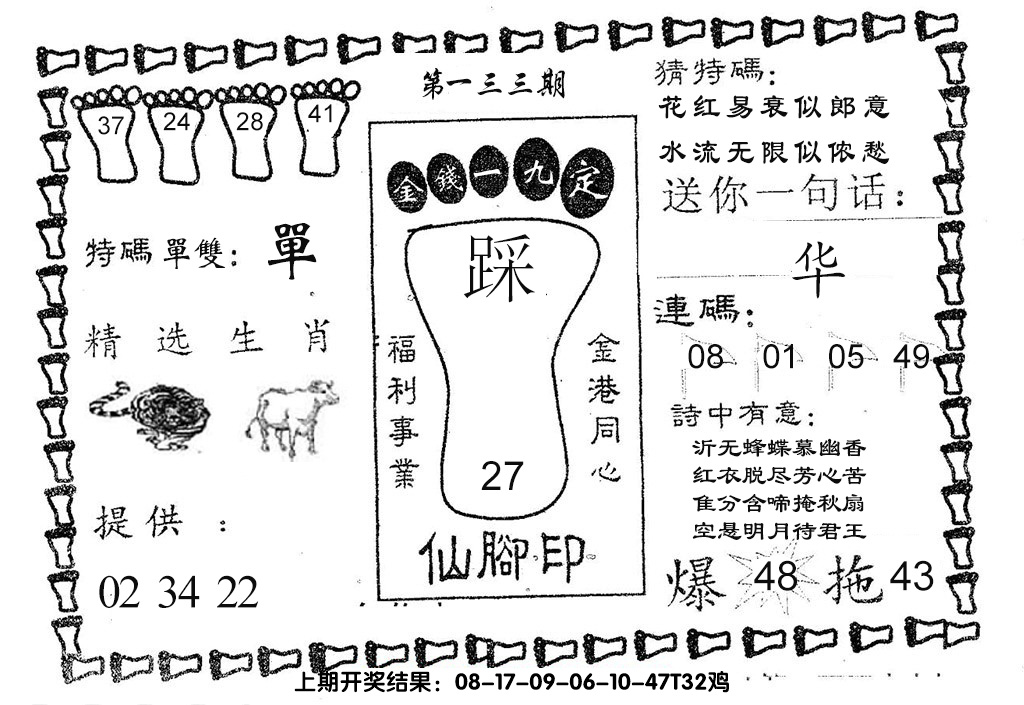 第一三三期
37 24 28 41
特碼單雙：單
精选生肖
提供：
02 34 22
金錢一九定
踩
福利事業
金港同心
27
仙腳印
猜特碼：
花红易衰似郎意
水流无限似侬愁
送你一句话：
华
連碼：
08 01 05 49
詩中有意：
沂无蜂蝶慕幽香
红衣脱尽芳心苦
隹分含啼掩秋扇
空悬明月待君王
爆 48 拖 43
上期开奖结果：08-17-09-06-10-47T32鸡